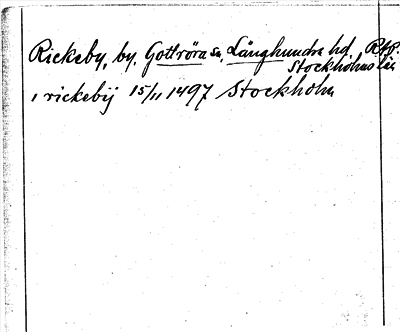 Rickeby, by, Gottröra sn, Långhundra hd,
Stockholms län
i rickebij 15/11 1497 Stockholm